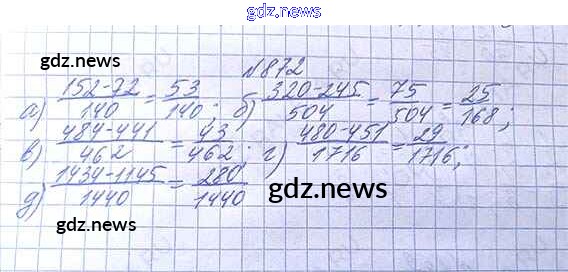 gdz.news
gdz.news №872 gdz.news
а) (152-72)/140 = 53/140; б) (320-245)/504 = 75/504 = 25/168;
в) (484-441)/462 = 43/462; г) (480-451)/1716 = 29/1716;
д) (1434-1145)/1440 = 280/1440
gdz.news
gdz.news